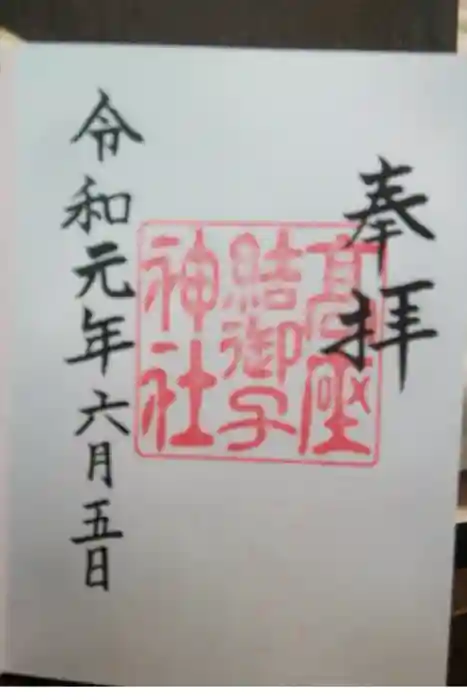 奉拝
高座
結御子
神社
令和元年六月五日